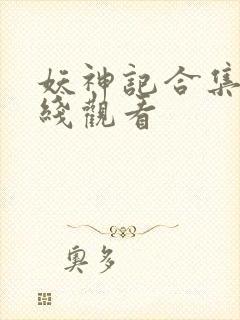 妖神記合集
綫觀看
奧多